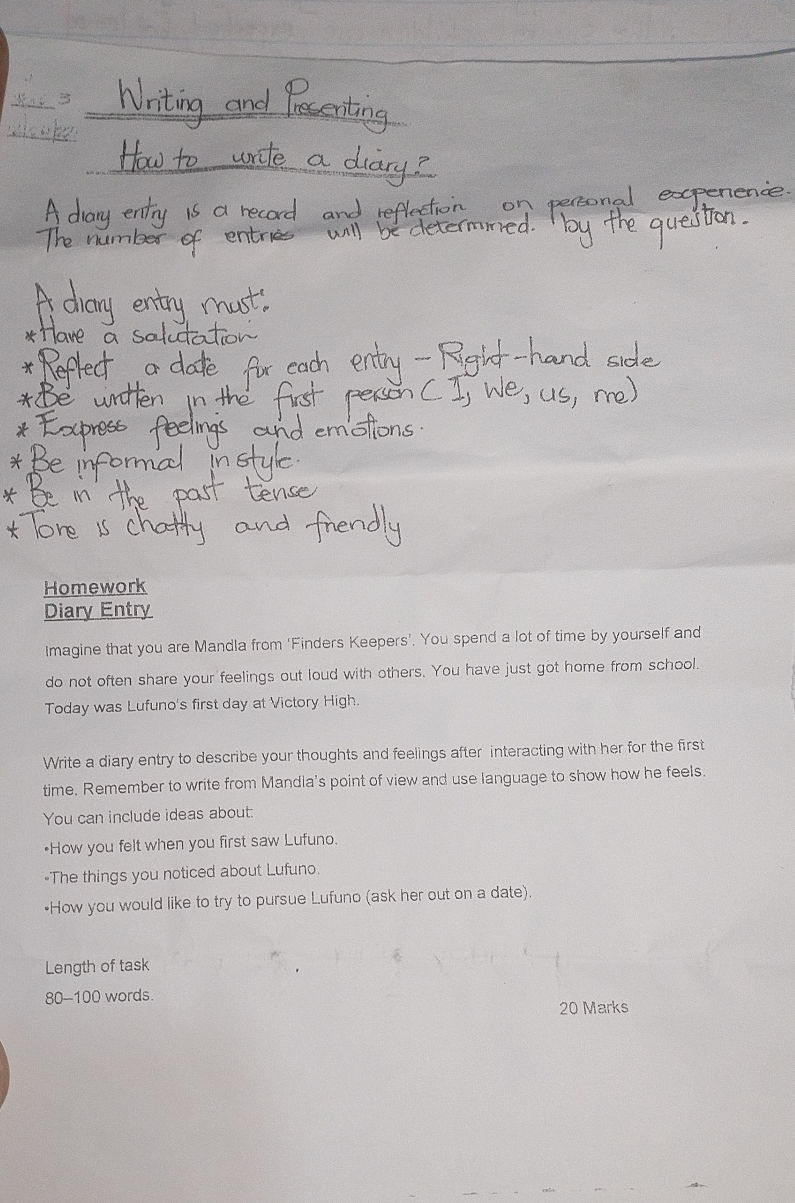 Writing and Presenting
How to write a diary?
A diary entry is a record and reflection on personal experience.
The number of entries will be determined. by the question.
A diary entry must:
* Have a salutation
* Reflect a date for each entry - Right-hand side
* Be written in the first person ( I, We, us, me)
* Express feelings and emotions.
* Be informal in style.
* Be in the past tense
* Tone is chatty and friendly
Homework
Diary Entry
Imagine that you are Mandla from 'Finders Keepers'. You spend a lot of time by yourself and
do not often share your feelings out loud with others. You have just got home from school.
Today was Lufuno's first day at Victory High.
Write a diary entry to describe your thoughts and feelings after interacting with her for the first
time. Remember to write from Mandla's point of view and use language to show how he feels.
You can include ideas about:
•How you felt when you first saw Lufuno.
•The things you noticed about Lufuno.
•How you would like to try to pursue Lufuno (ask her out on a date).
Length of task
80–100 words.
20 Marks